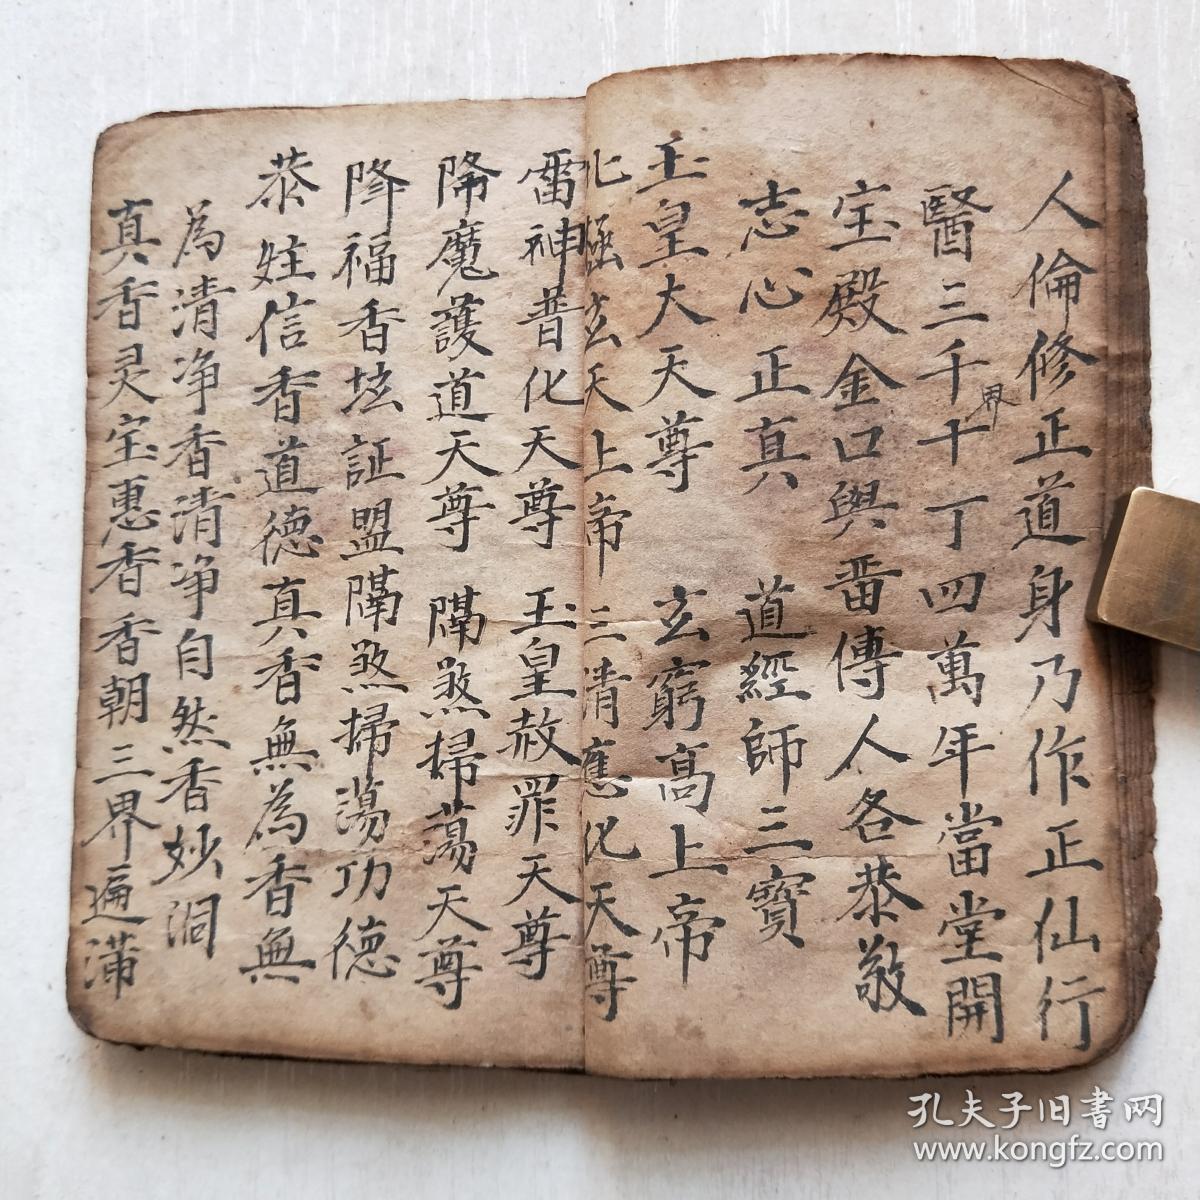 人倫修正道身乃作正仙行
醫三千十丁四萬年當堂開
界
宝殿金口與畨傳人各恭敬
志心正真 道經師三寳
玉皇大天尊 玄窮高上帝
北極玄天上帝 三清應化天尊
雷神普化天尊 玉皇赦罪天尊
降魔護道天尊 隔煞掃蕩天尊
降福香坛証盟隔煞掃蕩功德
恭炷信香道德真香無為香無
為清净香清净自然香妙洞
真香灵宝惠香香朝三界遍满
孔夫子旧書网
www.kongfz.com